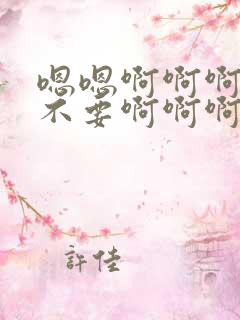 嗯嗯啊啊啊
不要啊啊啊
許佳